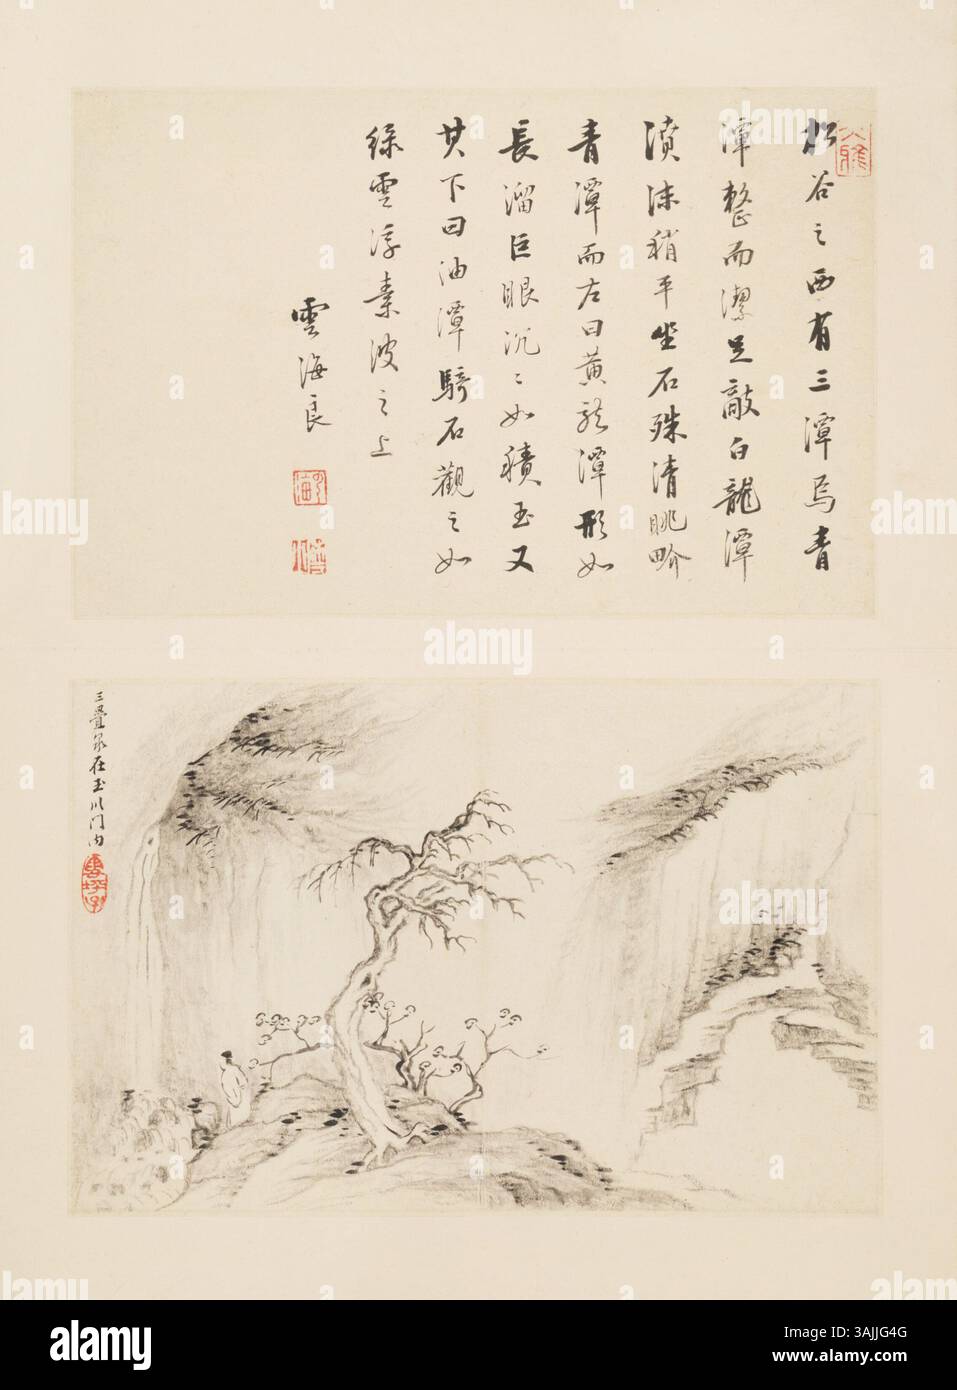 松谷之西有三潭烏青
潭整而潔足敵白龍潭
濆沫稍平坐石殊清眺畍
青潭而左曰黄龍潭形如
長溜巨眼沉〻如積玉又
其下曰油潭騎石觀之如
綠雲浮素波之上
雲海良
三疊泉在玉川門内
雪坪子
alamy
alamy
alamy
Image ID: 3AJJG4G
www.alamy.com